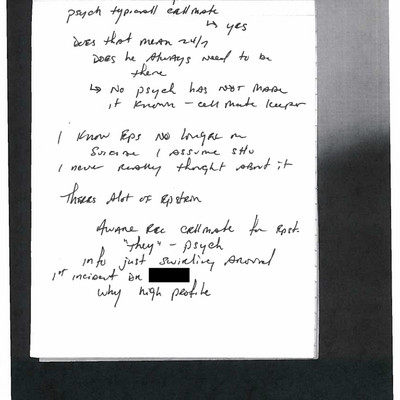 psych typicall cellmate
↳ yes
Does that mean 24/7
Does he always need to be
there
↳ No psych has not made
it known - cell mate keeper
I know Eps no longer on
suicide I assume SHU
I never really thought about it
Theres alot of Epstein
Aware rec cellmate for Epst.
"they" - psych
info just swirling around
1st incident on
why high profile